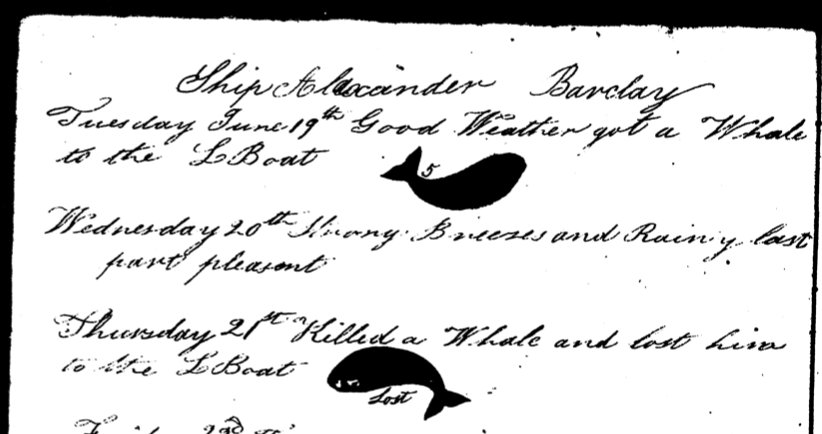 Ship Alexander Barclay
Tuesday June 19th Good Weather got a Whale
to the L Boat
5
Wednesday 20th Strong Breezes and Rainy last
part pleasent
Thursday 21st Killed a Whale and lost him
to the L Boat
Lost